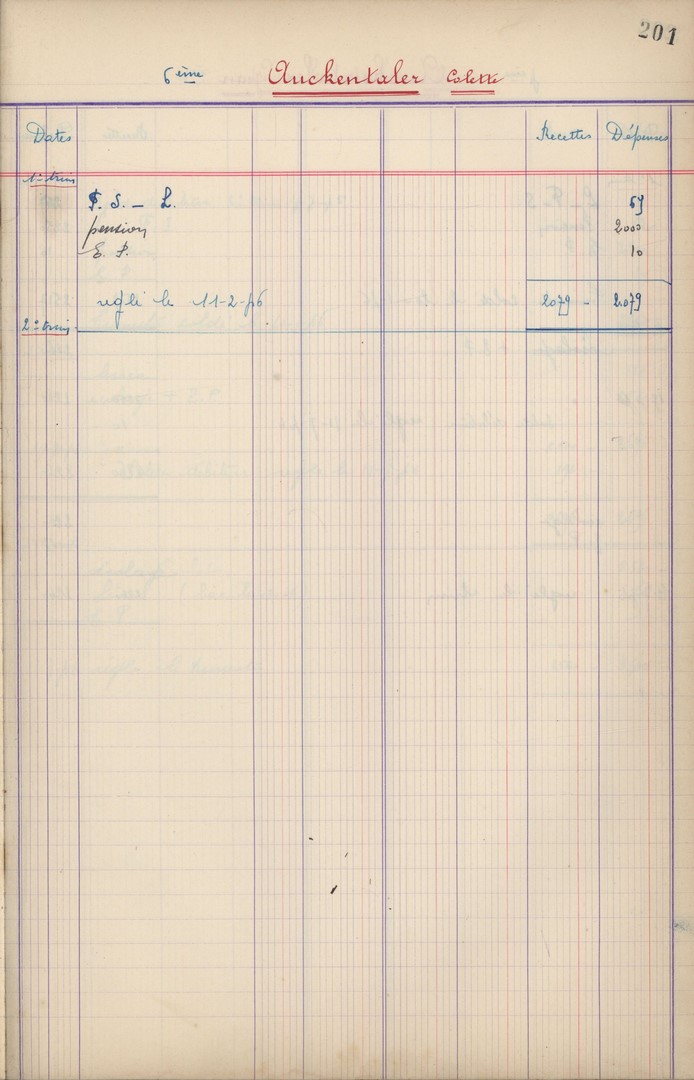 201
6ème Auckentaler Colette
Dates Recettes Dépenses
1er trim
F. S. - L. 69
pension 2000
E. P. 10
réglé le 11-2-46 2079 - 2.079
2e trim.